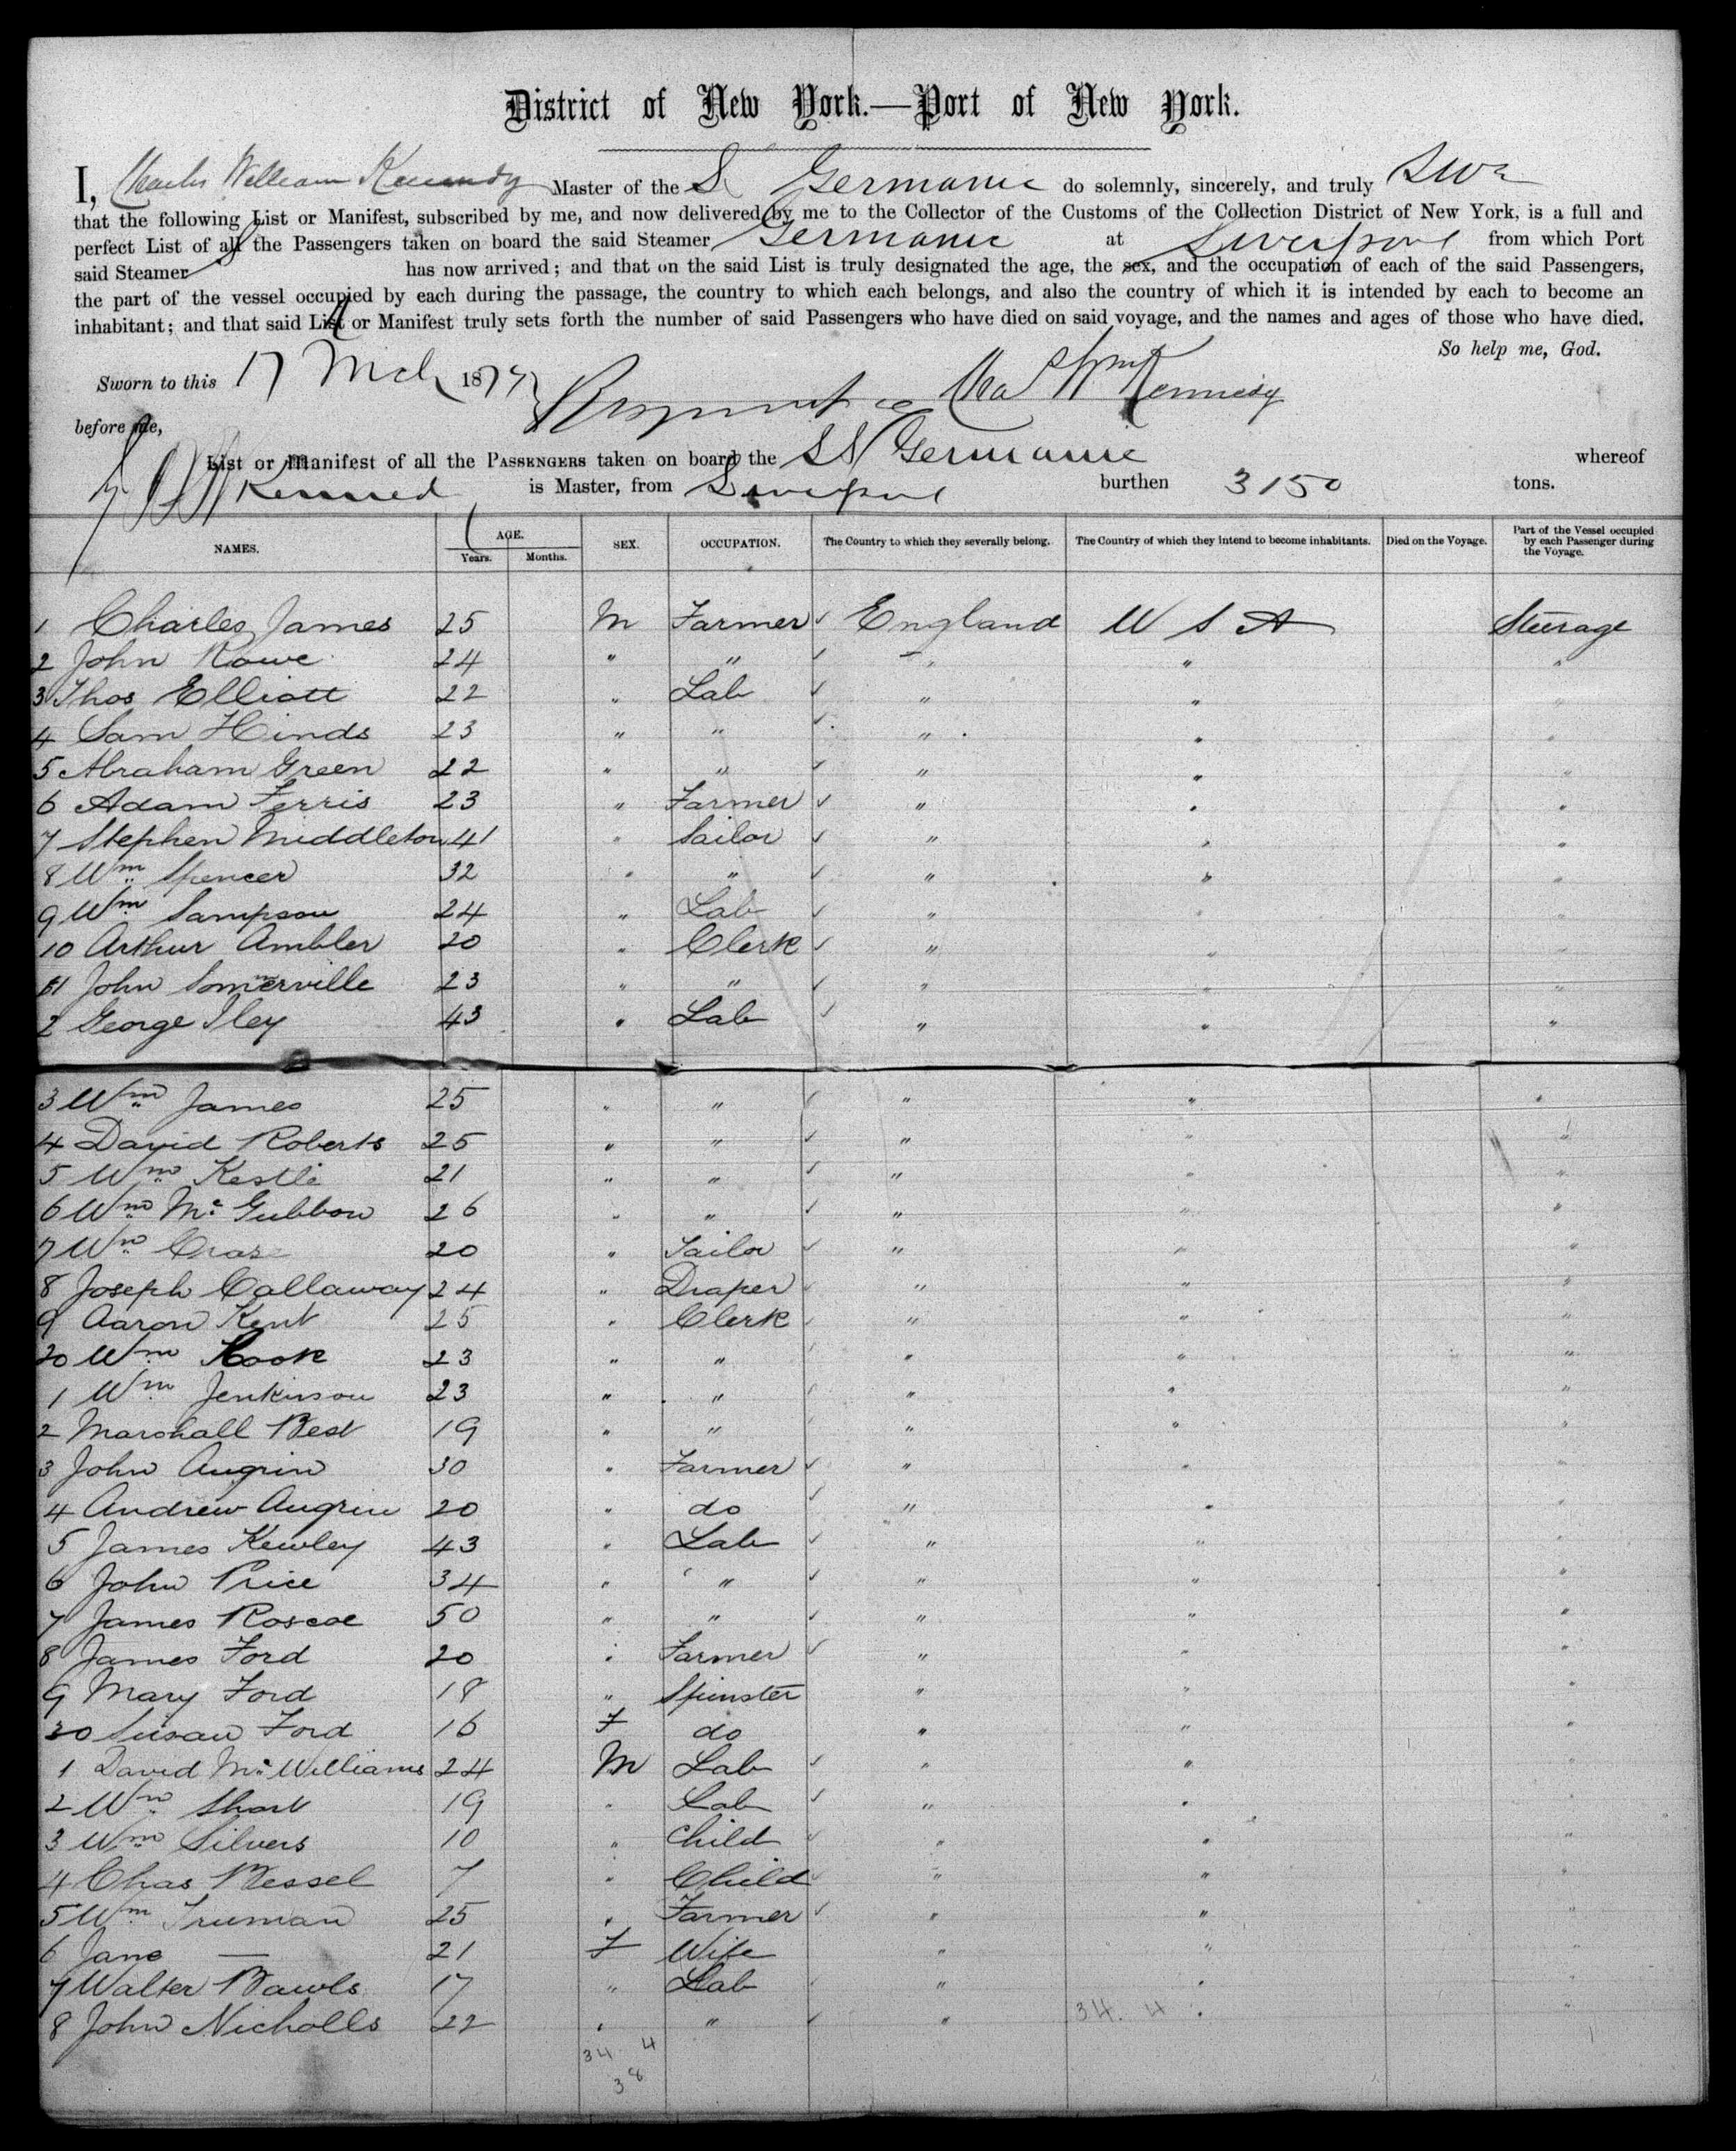 District of New York.—Port of New York.
I, Charles William Kennedy Master of the S Germanic do solemnly, sincerely, and truly swear
that the following List or Manifest, subscribed by me, and now delivered by me to the Collector of the Customs of the Collection District of New York, is a full and
perfect List of all the Passengers taken on board the said Steamer Germanic at Liverpool from which Port
said Steamer has now arrived; and that on the said List is truly designated the age, the sex, and the occupation of each of the said Passengers,
the part of the vessel occupied by each during the passage, the country to which each belongs, and also the country of which it is intended by each to become an
inhabitant; and that said List or Manifest truly sets forth the number of said Passengers who have died on said voyage, and the names and ages of those who have died.
So help me, God.
Sworn to this 17 Mch 1877 Chas Wm Kennedy
before me,
List or Manifest of all the PASSENGERS taken on board the SS Germanic whereof
Kenned is Master, from Liverpool burthen 3150 tons.
NAMES. AGE. Years. Months. SEX. OCCUPATION. The Country to which they severally belong. The Country of which they intend to become inhabitants. Died on the Voyage. Part of the Vessel occupied by each Passenger during the Voyage.
1 Charles James 25 M Farmer ✓ England U S A Steerage
2 John Rowe 24 " " ✓ " " "
3 Thos Elliott 22 " Lab ✓ " " "
4 Sam Hinds 23 " " ✓ " " "
5 Abraham Green 22 " " ✓ " " "
6 Adam Ferris 23 " Farmer ✓ " " "
7 Stephen Middleton 41 " Sailor ✓ " " "
8 Wm Spencer 32 " " ✓ " " "
9 Wm Sampson 24 " Lab ✓ " " "
10 Arthur Ambler 20 " Clerk ✓ " " "
11 John Somerville 23 " " ✓ " " "
2 George Iley 43 " Lab ✓ " " "
3 Wm James 25 " " ✓ " " "
4 David Roberts 25 " " ✓ " " "
5 Wm Kestle 21 " " ✓ " " "
6 Wm Mc Gubbon 26 " " ✓ " " "
7 Wm 20 " Tailor ✓ " " "
8 Joseph Callaway 24 " Draper ✓ " " "
9 Aaron Kent 25 " Clerk ✓ " " "
20 Wm Hook 23 " " ✓ " " "
1 Wm Jenkinson 23 " " ✓ " " "
2 Marshall Best 19 " " ✓ " " "
3 John Augrin 30 " Farmer ✓ " " "
4 Andrew Augrin 20 " do ✓ " " "
5 James Kewley 43 " Lab ✓ " " "
6 John Price 34 " " ✓ " " "
7 James Roscoe 50 " " ✓ " " "
8 James Ford 20 " Farmer ✓ " " "
9 Mary Ford 18 " Spinster " " "
30 Susan Ford 16 F do " " "
1 David Mc Williams 24 M Lab ✓ " " "
2 Wm Short 19 " Lab ✓ " " "
3 Wm Silvers 10 " Child ✓ " " "
4 Chas Bessel 7 " Child ✓ " " "
5 Wm Truman 25 " Farmer ✓ " " "
6 Jane — 21 F Wife " " "
7 Walter Bawls 17 " Lab ✓ " " "
8 John Nicholls 22 " " ✓ " 34. 4 " "
34 4
38